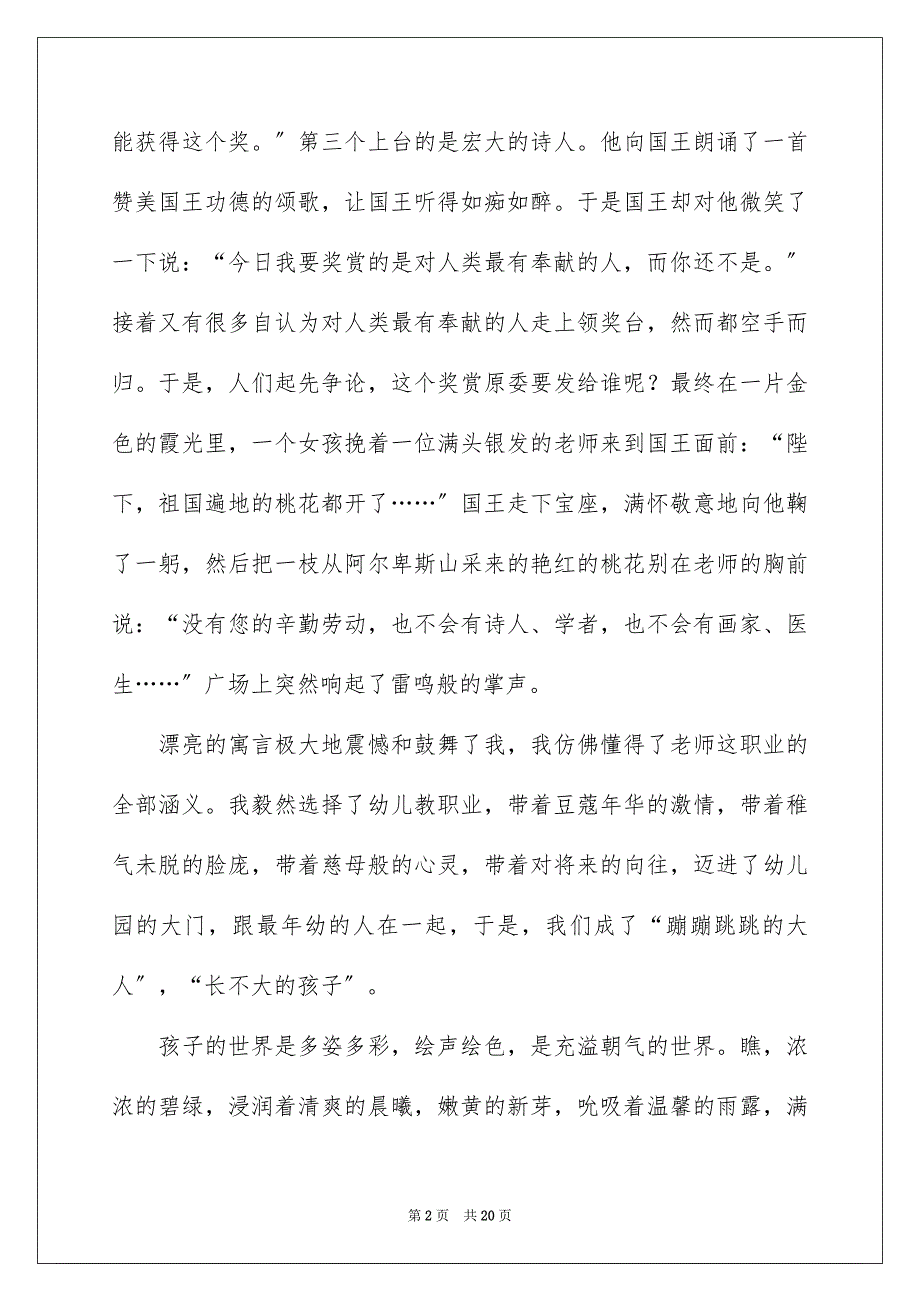 能获得这个奖。〞第三个上台的是宏大的诗人。他向国王朗诵了一首
赞美国王功德的颂歌，让国王听得如痴如醉。于是国王却对他微笑了
一下说：“今日我要奖赏的是对人类最有奉献的人，而你还不是。〞
接着又有很多自认为对人类最有奉献的人走上领奖台，然而都空手而
归。于是，人们起先争论，这个奖赏原委要发给谁呢？最终在一片金
色的霞光里，一个女孩挽着一位满头银发的老师来到国王面前：“陛
下，祖国遍地的桃花都开了……〞国王走下宝座，满怀敬意地向他鞠
了一躬，然后把一枝从阿尔卑斯山采来的艳红的桃花别在老师的胸前
说：“没有您的辛勤劳动，也不会有诗人、学者，也不会有画家、医
生……〞广场上突然响起了雷鸣般的掌声。
漂亮的寓言极大地震憾和鼓舞了我，我仿佛懂得了老师这职业的
全部涵义。我毅然选择了幼儿教职业，带着豆蔻年华的激情，带着稚
气未脱的脸庞，带着慈母般的心灵，带着对将来的向往，迈进了幼儿
园的大门，跟最年幼的人在一起，于是，我们成了“蹦蹦跳跳的大
人〞，“长不大的孩子〞。
孩子的世界是多姿多彩，绘声绘色，是充溢朝气的世界。瞧，浓
浓的碧绿，浸润着清爽的晨曦，嫩黄的新芽，吮吸着温馨的雨露，满
第 2 页 共 20 页